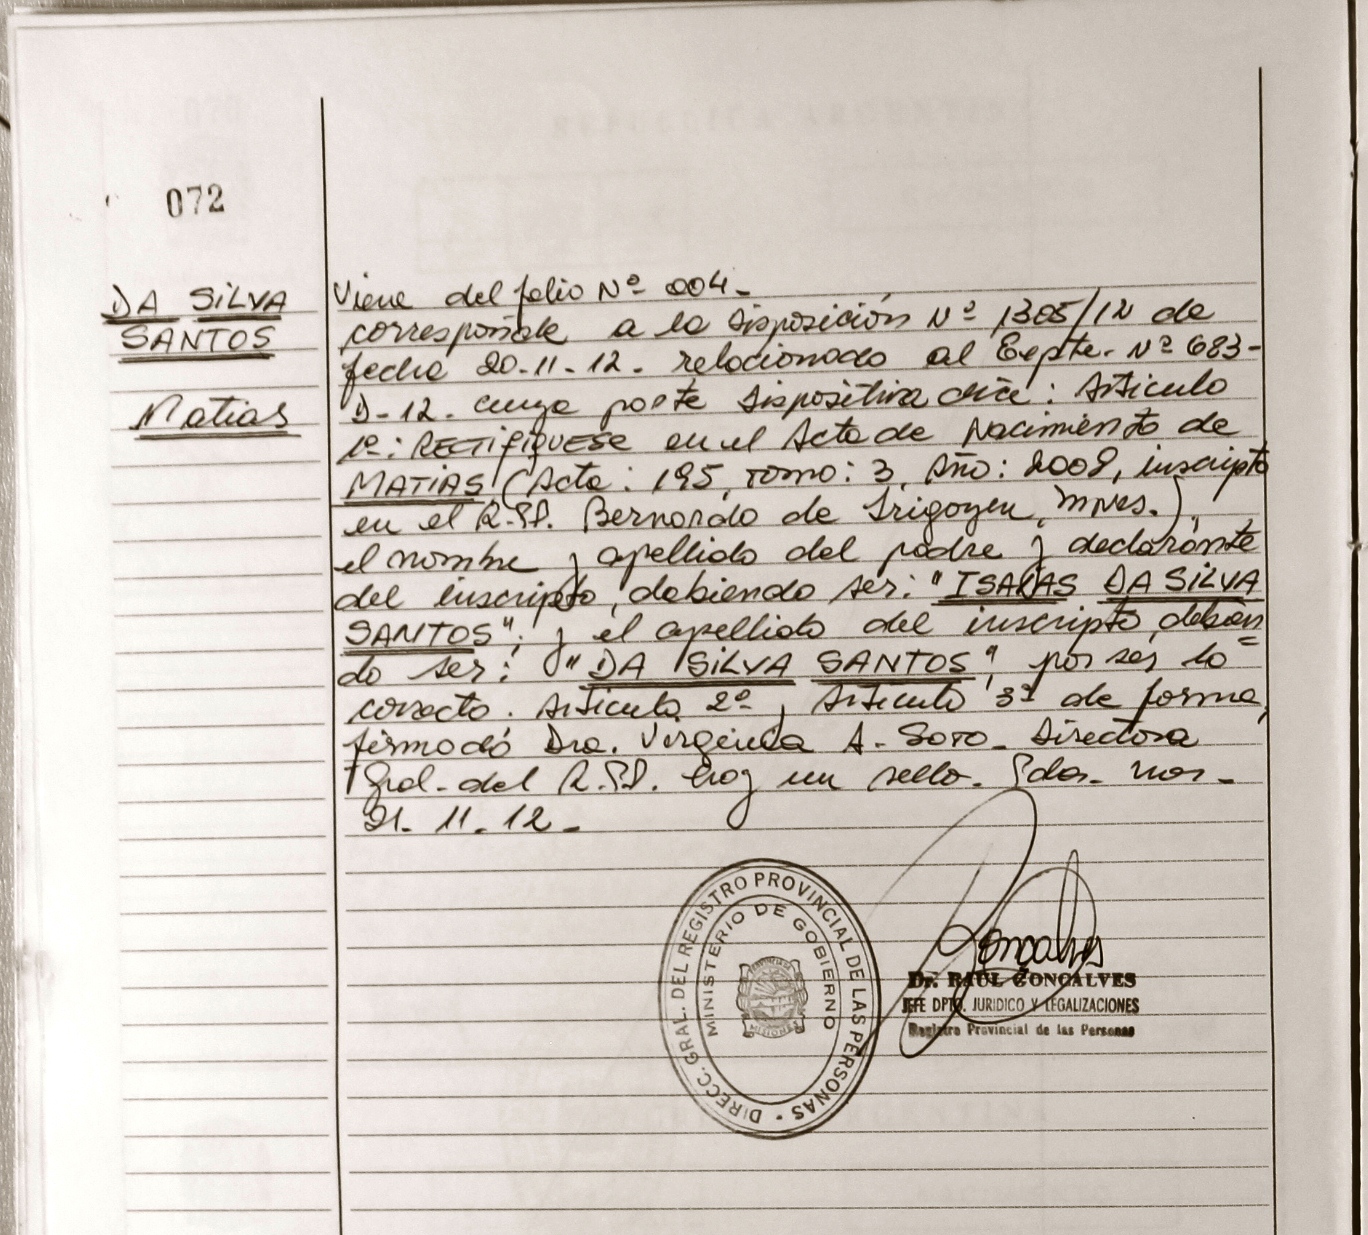 072
DA SILVA
SANTOS
Matias
Viene del folio Nº 004-
corresponde a la Disposición Nº 1305/12 de
fecha 20-11-12. relacionado al Expte. Nº 683-
D-12. cuya parte Dispositiva dice: Articulo
1º: RECTIFIQUESE en el Acta de Nacimiento de
MATIAS (Acta: 195, Tomo: 3, Año: 2008, inscripto
en el R.P.P. Bernardo de Irigoyen, Mnes.),
el nombre y apellido del padre y declarante
del inscripto, debiendo ser: "ISAIAS DA SILVA
SANTOS"; y el apellido del inscripto, debien
do ser: "DA SILVA SANTOS", por ser lo
correcto. Articulo 2º, Articulo 3º de forma,
firmado Dra. Virginia A. Soto. Directora
Gral. del R.P.P. hay un sello. Pdas. Mnes.
21. 11. 12-
DIRECC. GRAL. DEL REGISTRO PROVINCIAL DE LAS PERSONAS
MINISTERIO DE GOBIERNO
MISIONES
Goncalves
Dr. RAUL GONCALVES
JEFE DPTO. JURIDICO Y LEGALIZACIONES
Registro Provincial de las Personas